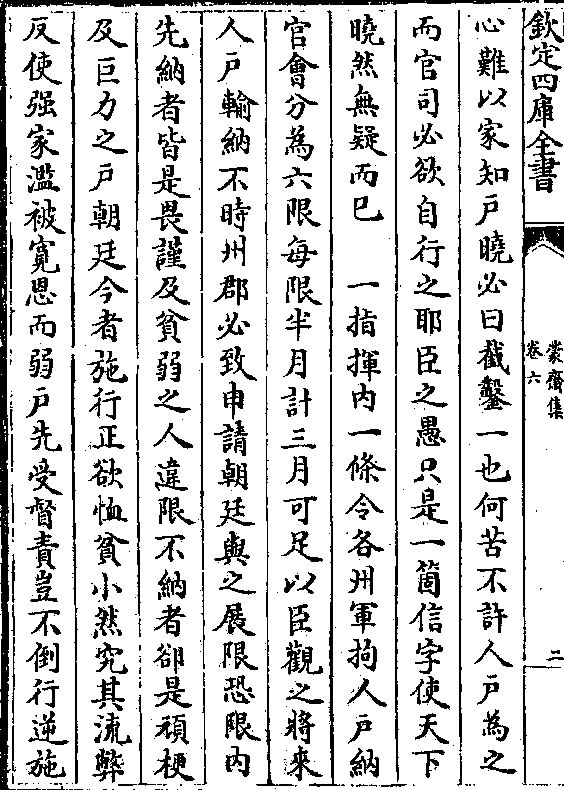 欽定四庫全書
蒙齋集
卷六
二
心難以家知戶曉必曰截鑿一也何苦不許人戶為之
而官司必欲自行之耶臣之愚只是一箇信字使天下
曉然無疑而已　一指揮内一條令各州軍拘人戶納
官會分為六限每限半月計三月可足以臣觀之將來
人戶輸納不時州郡必致申請朝廷與之展限恐限内
先納者皆是畏謹及貧弱之人違限不納者卻是頑梗
及巨力之戶朝廷今者施行正欲恤貧小然究其流弊
反使强家濫被寛恩而弱戶先受督責豈不倒行逆施